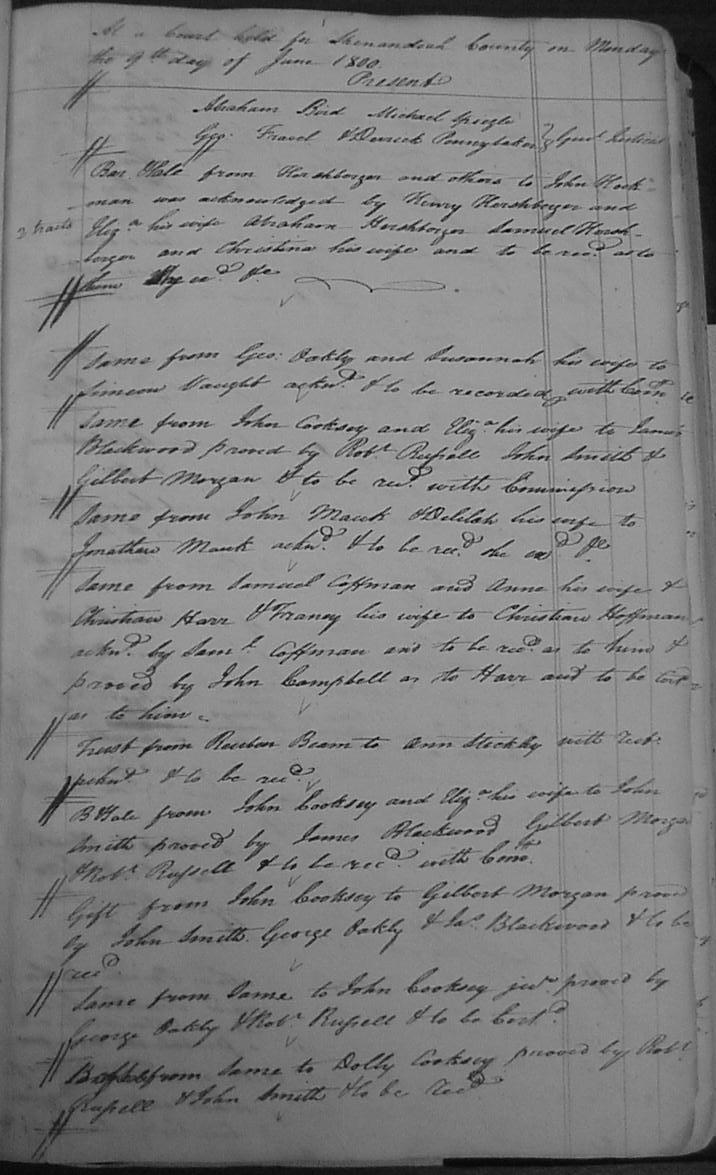 At a Court held for Shenandoah County on Monday
the 9th day of June 1800.
Present
Abraham Bird Michael Speegle
Geo. Fravel & Derrick Pennybaker Gent Justices
Bar Sale from Hershberger and others to John Hock-
man was acknowledged by Henry Hershberger and
2 tracts
Eliza his wife Abraham Hershberger Samuel Hersh-
berger and Christina his wife and to be recd. as to
them
Same from Geo: Oakly and Susannah his wife to
Simeon Vaught acknd. & to be recorded with Comn.
Same from John Cooksey and Eliza his wife to James
Blackwood proved by Robt. Russell John Smith &
Gilbert Morgan & to be recd. with Commission
Same from John Mauk & Delilah his wife to
Jonathan Mauk acknd. & to be recd. she exd. &c
Same from Samuel Coffman and Anne his wife &
Christian Harr & Franey his wife to Christian Hoffman
acknd. by Saml. Coffman and to be recd. as to him &
proved by John Campbell as to Harr and to be Cert
as to him
Trust from Reuben Beam to Ann Stickly with
acknd. & to be recd.
B Sale from John Cooksey and Eliza his wife to John
Smith proved by James Blackwood Gilbert Morgan
& Robt. Russell & to be recd. with Comn.
Gift from John Cooksey to Gilbert Morgan proved
by John Smith George Oakly & Jas. Blackwood & to be
recd.
Same from Same to John Cooksey junr. proved by
George Oakly & Robt. Russell & to be Certd.
from Same to Dolly Cooksey proved by Robt.
Russell & John Smith & to be Recd.